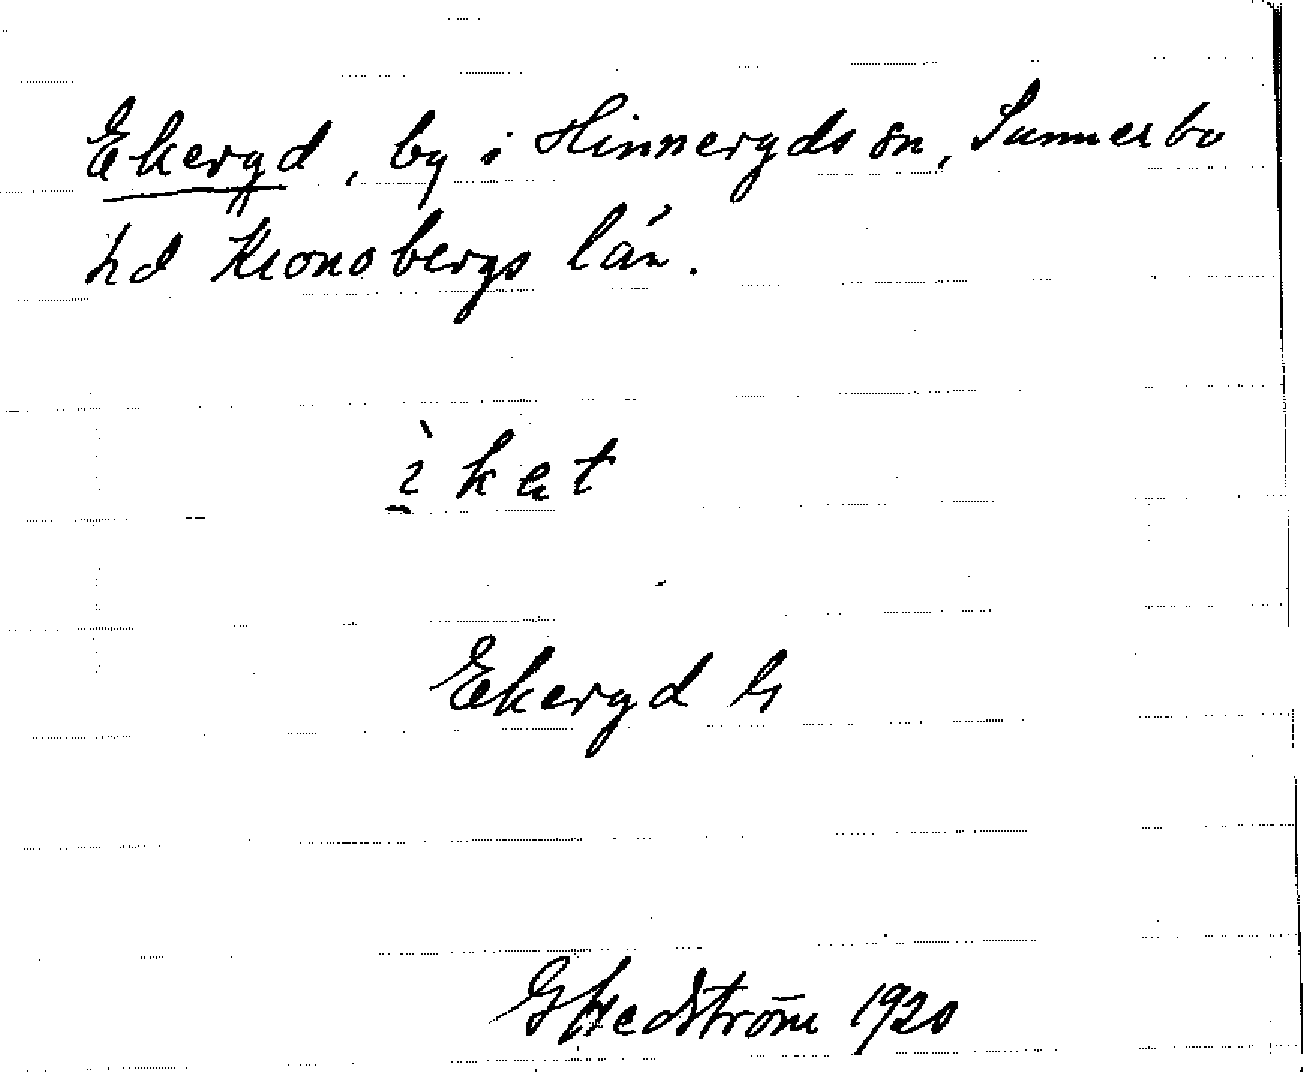 Ekeryd, by i Hinneryds sn, Sunnerbo
hd Kronobergs län.
ì̱ kɐt
Ekeryd G
G Hedström 1920